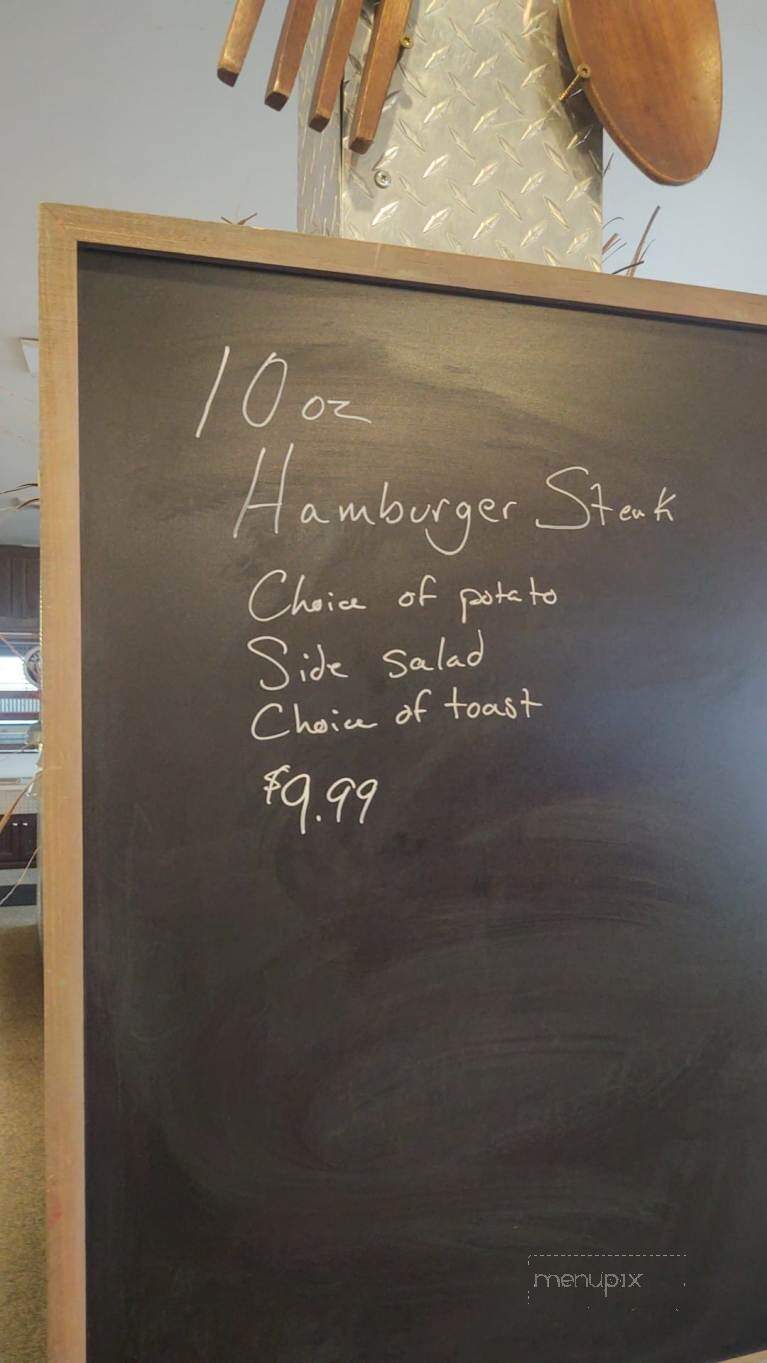 10 oz
Hamburger Steak
Choice of potato
Side salad
Choice of toast
$9.99
menupix